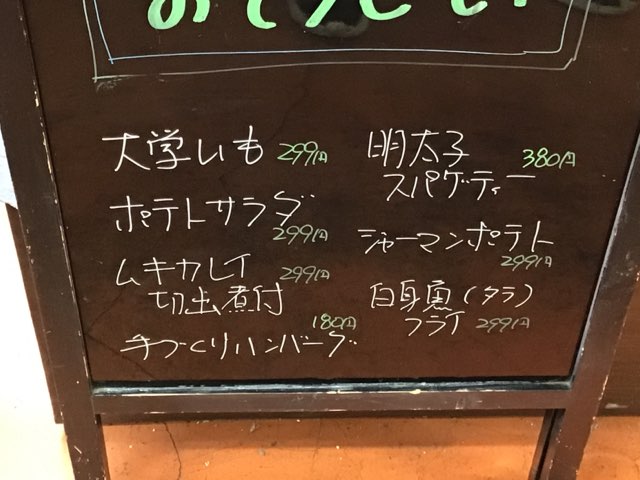 おそうざい
大学いも 299円
ポテトサラダ
299円
ムキカレイ 299円
切出煮付
180円
手づくりハンバーグ
明太子 380円
スパゲティー
ジャーマンポテト
299円
白身魚(タラ)
フライ 299円